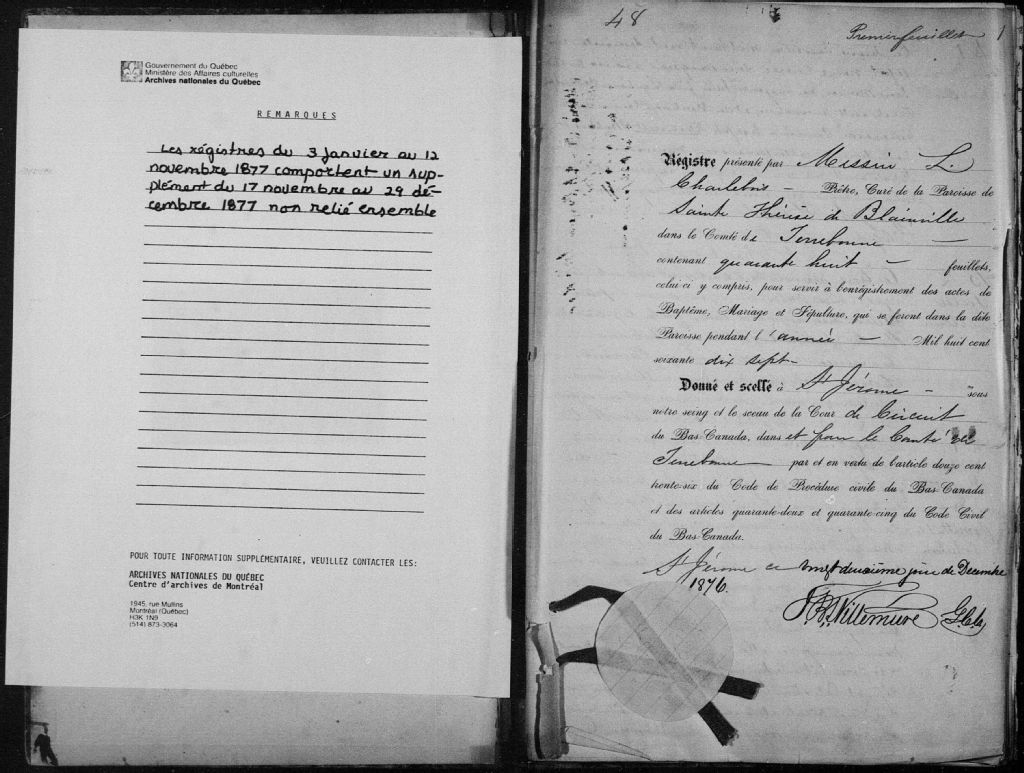 Gouvernement du Québec
Ministère des Affaires culturelles
Archives nationales du Québec
REMARQUES
Les régistres du 3 janvier au 12
novembre 1877 comportent un sup-
plément du 17 novembre au 29 dé-
cembre 1877 non relié ensemble
POUR TOUTE INFORMATION SUPPLÉMENTAIRE, VEUILLEZ CONTACTER LES:
ARCHIVES NATIONALES DU QUÉBEC
Centre d'archives de Montréal
1945, rue Mullins
Montréal (Québec)
H3K 1N9
(514) 873-3064
48
Premier feuillet 1
Régistre présenté par Messire L.
Charlebois - Prêtre, Curé de la Paroisse de
Sainte Thérèse de Blainville
dans le Comté de Terrebonne -
contenant quarante huit - feuillets,
celui-ci y compris, pour servir à l'enrégistrement des actes de
Baptême, Mariage et Sépulture, qui se feront dans la dite
Paroisse pendant l'année - Mil huit cent
soixante dix sept -
Donné et scellé à St Jérome - sous
notre seing et le sceau de la Cour de Circuit
du Bas-Canada, dans et pour le Comté de
Terrebonne - par et en vertu de l'article douze cent
trente-six du Code de Procédure civile du Bas-Canada
et des articles quarante-deux et quarante-cinq du Code Civil
du Bas-Canada.
St Jérome ce vingt deuxième jour de Decembre
1876.
Villemure